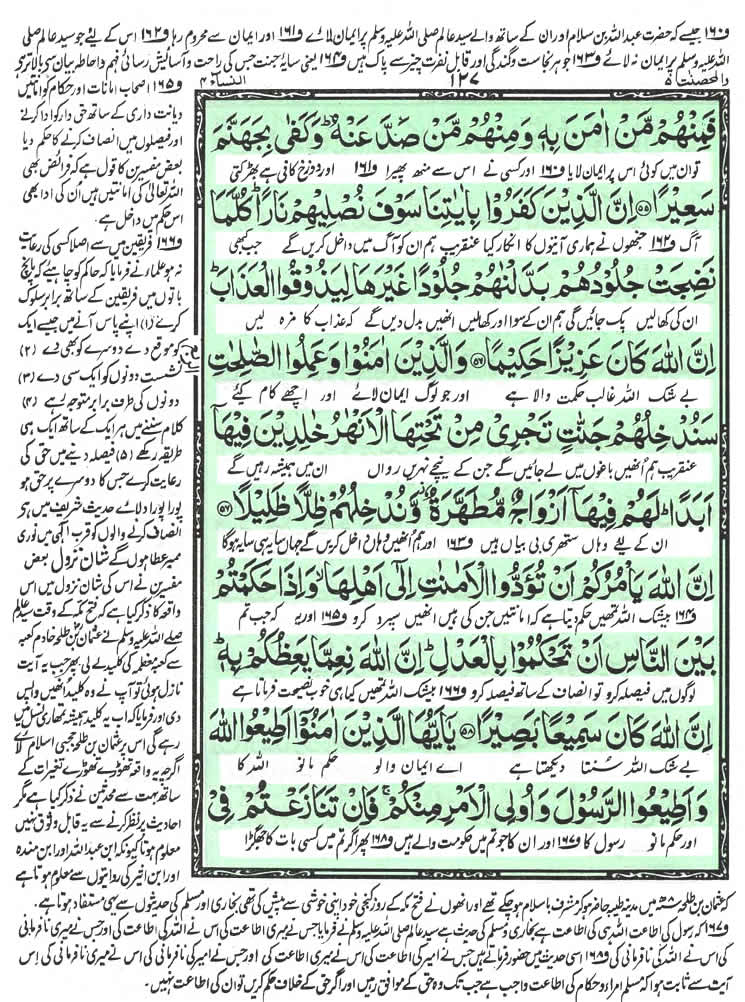 و۱۶۰ جیسے کہ حضرت عبداللہ بن سلام اور ان کے ساتھ والے سید عالم صلی اللہ علیہ وسلم پر ایمان لائے و۱۶۱ اور ایمان سے محروم رہا و۱۶۲ اس کے لیے جو سید عالم صلی
اللہ علیہ وسلم پر ایمان نہ لائے و۱۶۳ جو ہر نجاست و گندگی اور قابل نفرت چیز سے پاک ہیں و۱۶۴ یعنی سایۂ جنت جس کی راحت و آسائش رسائی فہم و احاطۂ بیان سے بالاتر ہے
والمحصنت ۵
۱۲۷
النساء ۴
فَمِنْهُمْ مَّنْ اٰمَنَ بِهٖ وَمِنْهُمْ مَّنْ صَدَّ عَنْهُ ؕ وَكَفٰى بِجَهَنَّمَ
تو ان میں کوئی اس پر ایمان لایا و۱۶۰ اور کسی نے اس سے منھ پھیرا و۱۶۱ اور دوزخ کافی ہے بھڑکتی
سَعِيْرًا ﴿۵۵﴾ اِنَّ الَّذِيْنَ كَفَرُوْا بِاٰيٰتِنَا سَوْفَ نُصْلِيْهِمْ نَارًا ؕ كُلَّمَا
آگ و۱۶۲ جنھوں نے ہماری آیتوں کا انکار کیا عنقریب ہم ان کو آگ میں داخل کریں گے جب کبھی
نَضِجَتْ جُلُوْدُهُمْ بَدَّلْنٰهُمْ جُلُوْدًا غَيْرَهَا لِيَذُوْقُوا الْعَذَابَ ؕ
ان کی کھالیں پک جائیں گی ہم ان کے سوا اور کھالیں انھیں بدل دیں گے کہ عذاب کا مزہ لیں
اِنَّ اللّٰهَ كَانَ عَزِيْزًا حَكِيْمًا ﴿۵۶﴾ وَالَّذِيْنَ اٰمَنُوْا وَعَمِلُوا الصّٰلِحٰتِ
بے شک اللہ غالب حکمت والا ہے اور جو لوگ ایمان لائے اور اچھے کام کیے
سَنُدْخِلُهُمْ جَنّٰتٍ تَجْرِيْ مِنْ تَحْتِهَا الْاَنْهٰرُ خٰلِدِيْنَ فِيْهَاۤ
عنقریب ہم انھیں باغوں میں لے جائیں گے جن کے نیچے نہریں رواں ان میں ہمیشہ رہیں گے
اَبَدًا ؕ لَهُمْ فِيْهَاۤ اَزْوَاجٌ مُّطَهَّرَةٌ ۫ وَّنُدْخِلُهُمْ ظِلًّا ظَلِيْلًا ﴿۵۷﴾
ان کے لیے وہاں ستھری بی بیاں ہیں و۱۶۳ اور ہم انھیں وہاں داخل کریں گے جہاں سایہ ہی سایہ ہوگا
اِنَّ اللّٰهَ يَاْمُرُكُمْ اَنْ تُؤَدُّوا الْاَمٰنٰتِ اِلٰۤى اَهْلِهَا ۙ وَاِذَا حَكَمْتُمْ
و۱۶۴ بیشک اللہ تمھیں حکم دیتا ہے کہ امانتیں جن کی ہیں انھیں سپرد کرو و۱۶۵ اور یہ کہ جب تم
بَيْنَ النَّاسِ اَنْ تَحْكُمُوْا بِالْعَدْلِ ؕ اِنَّ اللّٰهَ نِعِمَّا يَعِظُكُمْ بِهٖ ؕ
لوگوں میں فیصلہ کرو تو انصاف کے ساتھ فیصلہ کرو و۱۶۶ بیشک اللہ تمھیں کیا ہی خوب نصیحت فرماتا ہے
اِنَّ اللّٰهَ كَانَ سَمِيْعًۢا بَصِيْرًا ﴿۵۸﴾ يٰۤاَيُّهَا الَّذِيْنَ اٰمَنُوْۤا اَطِيْعُوا اللّٰهَ
بے شک اللہ سنتا دیکھتا ہے اے ایمان والو حکم مانو اللہ کا
وَاَطِيْعُوا الرَّسُوْلَ وَاُولِى الْاَمْرِ مِنْكُمْ ۚ فَاِنْ تَنَازَعْتُمْ فِيْ
اور حکم مانو رسول کا و۱۶۷ اور ان کا جو تم میں حکومت والے ہیں و۱۶۸ پھر اگر تم میں کسی بات کا جھگڑا
و۱۶۵ اصحاب امانات اور حکام کو امانتیں
دیانت داری کے ساتھ حق دار کو ادا کرنے
اور فیصلوں میں انصاف کرنے کا حکم دیا
بعض مفسرین کا قول ہے کہ فرائض بھی
اللہ تعالیٰ کی امانتیں ہیں ان کی ادا بھی
اس حکم میں داخل ہے۔
و۱۶۶ فریقین میں سے اصلا کسی کی رعایت
نہ ہو علماء نے فرمایا کہ حاکم کو چاہئے کہ پانچ
باتوں میں فریقین کے ساتھ برابر سلوک
کرے (۱) اپنے پاس آنے میں جیسے ایک
کو موقع دے دوسرے کو بھی دے (۲)
نشست دونوں کو ایک سی دے (۳)
دونوں کی طرف برابر متوجہ رہے (۴)
کلام سننے میں ہر ایک کے ساتھ ایک ہی
طریقہ رکھے (۵) فیصلہ دینے میں حق کی
رعایت کرے جس کا دوسرے پر حق ہو
پورا پورا دلائے حدیث شریف میں ہے
انصاف کرنے والوں کو قرب الٰہی میں نوری
ممبر عطا ہوں گے شان نزول بعض
مفسرین نے اس کی شان نزول میں اس
واقعہ کا ذکر کیا ہے کہ فتح مکہ کے وقت سید عالم
صلے اللہ علیہ وسلم نے عثمان بن طلحہ خادم کعبہ
سے کعبہ معظمہ کی کلید لے لی پھر جب یہ آیت
نازل ہوئی تو آپ نے وہ کلید انھیں واپس
دی اور فرمایا کہ اب یہ کلید ہمیشہ تمھاری نسل میں
رہے گی اس پر عثمان بن طلحہ حجبی اسلام لائے
اگرچہ یہ واقعہ تھوڑے تھوڑے تغیرات کے
ساتھ بہت سے محدثین نے ذکر کیا ہے مگر
احادیث پر نظر کرنے سے یہ قابل وثوق نہیں
معلوم ہوتا کیونکہ ابن عبداللہ اور ابن مندہ
اور ابن اثیر کی روایتوں سے معلوم ہوتا ہے
کہ عثمان بن طلحہ ۸ھ میں مدینہ طیبہ حاضر ہو کر مشرف باسلام ہو چکے تھے اور انھوں نے فتح مکہ کے روز کنجی خود اپنی خوشی سے پیش کی تھی بخاری اور مسلم کی حدیثوں سے یہی مستفاد ہوتا ہے۔
و۱۶۷ کہ رسول کی اطاعت اللہ ہی کی اطاعت ہے بخاری و مسلم کی حدیث ہے سید عالم صلی اللہ علیہ وسلم نے فرمایا جس نے میری اطاعت کی اس نے اللہ کی اطاعت کی اور جس نے میری نافرمانی
کی اس نے اللہ کی نافرمانی کی و۱۶۸ اسی حدیث میں حضور فرماتے ہیں جس نے امیر کی اطاعت کی اس نے میری اطاعت کی اور جس نے امیر کی نافرمانی کی اس نے میری نافرمانی کی اس
آیت سے ثابت ہوا کہ مسلم امراء و حکام کی اطاعت واجب ہے جب تک وہ حق کے موافق رہیں اور اگر حق کے خلاف حکم کریں تو ان کی اطاعت نہیں۔